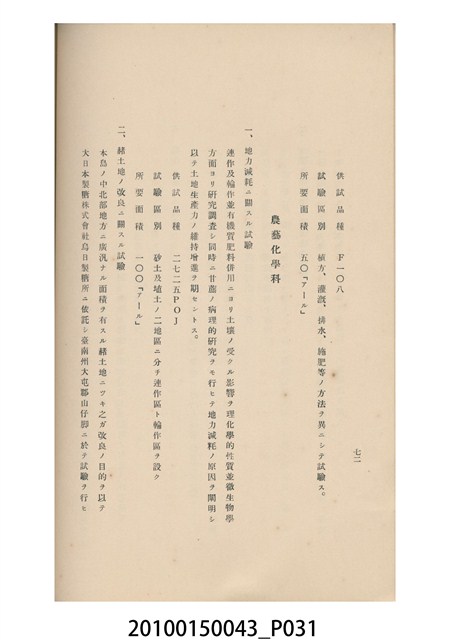 供試品種 F一〇八
試驗區別 植方、灌漑、排水、施肥等ノ方法ヲ異ニシテ試驗ス。
所要面積 五〇「アール」
農藝化學科
一、地力減耗ニ關スル試驗
連作及輪作並有機質肥料併用ニヨリ土壤ノ受クル影響ヲ理化學的性質並微生物學
方面ヨリ研究調査シ同時ニ甘蔗ノ病理的研究ヲモ行ヒテ地力減耗ノ原因ヲ闡明シ
以テ土地生產力ノ維持增進ヲ期セントス。
供試品種 二七二五POJ
試驗區別 砂土及埴土ノ二地區ニ分チ連作區ト輪作區ヲ設ク
所要面積 一〇〇「アール」
二、赭土地ノ改良ニ關スル試驗
本島ノ中北部地方ニ廣汎ナル面積ヲ有スル赭土地ニツキ之ガ改良ノ目的ヲ以テ
大日本製糖株式會社烏日製糖所ニ依託シ臺南州大屯郡山仔脚ニ於テ試驗ヲ行ヒ
七二
20100150043_P031